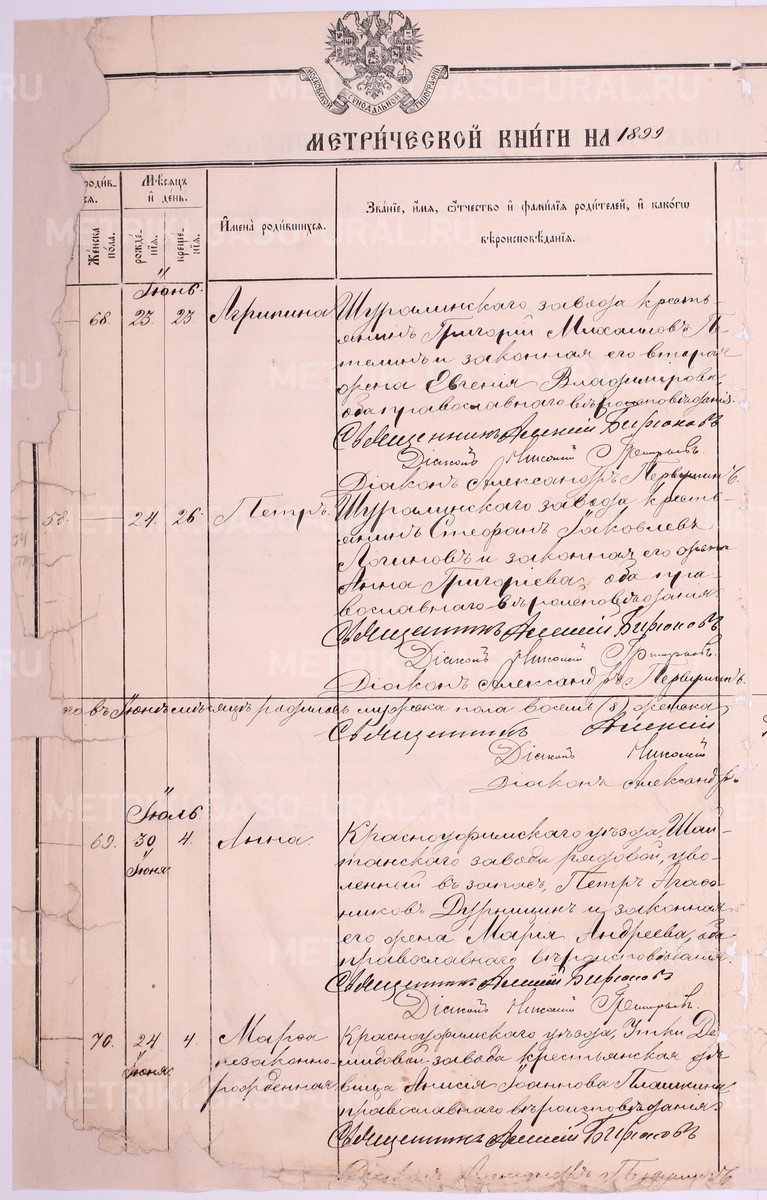 МОСКОВСКОЙ СУНОДАЛЬНОЙ ТИПОГРАФІИ
МЕТРИ́ЧЕСКОЙ КНИ́ГИ НА 1899
роди́в-
ся.
Же́нска по́ла.
Мѣ́сяцъ и де́нь.
рожде́-нїя.
креще́-нїя.
И҆мена̀ роди́вшихся.
Зва́нїе, и҆́мя, ѻ҆́тчество и҆ фами́лїя роди́телей, и҆ како́гѡ
вѣроисповѣ́данїя.
Іюнь.
68. 23 23 Агрипина Шуралинскаго завода кресть-
янинъ Григорій Михаиловъ Пе-
телинъ и законная его вторая
жена Евгенія Владимірова,
оба православнаго вѣроисповѣданія.
Священникъ Алексій Бирюковъ
Діаконъ Николай Григорьевъ.
Діаконъ Александръ Первушинъ.
58. — 24. 26. Петръ. Шуралинскаго завода кресть-
янинъ Стефанъ Іаковлевъ
Логиновъ и законная его жена
Анна Григориева, оба пра-
вославнаго вѣроисповѣданія
Священникъ Алексій Бирюковъ
Діаконъ Николай Григорьевъ.
Діаконъ Александръ Первушинъ.
въ Іюнѣ мѣсяцѣ родилось мужска пола восемь (8) женска
Священникъ Алексій
Діаконъ Николай
Діаконъ Александръ
Іюль
69. 30 Іюня 4. Анна. Красноуфимскаго уѣзда, Шай-
танскаго завода рядовой, уво-
ленный въ запасъ, Петръ Агафо-
никовъ Дурницинъ и законная
его жена Марія Андреева, оба
православнаго вѣроисповѣданія.
Священникъ Алексій Бирюковъ
Діаконъ Николай Григорьевъ.
70. 24 Іюня 4. Марѳа Красноуфимскаго уѣзда, Утки Де-
незаконно- мидовой завода крестьянская дѣ-
рожденная вица Анисія Іоаннова Плашкина
православнаго вѣроисповѣданія
Священникъ Алексій Бирюковъ
Діаконъ Александръ Первушинъ